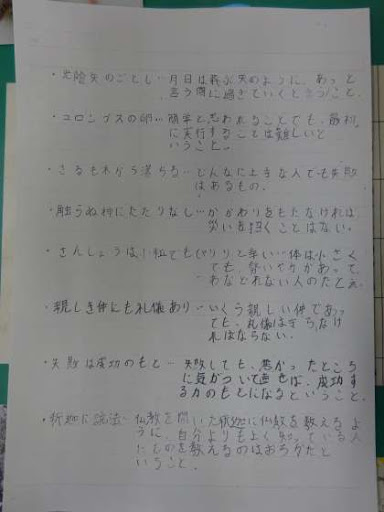 ・光陰矢のごとし…月日は飛ぶ矢のように、あっと
言う間に過ぎていくと言うこと。
・コロンブスの卵…簡単と思われることでも、最初
に実行することは難しいと
いうこと。
・さるも木から落ちる…どんなに上手な人でも失敗
はあるもの。
・触らぬ神にたたりなし…かかわりをもたなければ、
災いを招くことはない。
・さんしょうは小粒でもぴりりと辛い…体は小さく
ても、勢いや力があって、
あなどれない人のたとえ。
・親しき仲にも礼儀あり…いくら親しい仲であっ
ても、礼儀は守らなけ
ればならない。
・失敗は成功のもと…失敗しても、悪かったところ
に気がついて直せば、成功す
る力のもとになるということ。
・釈迦に説法…仏教を開いた釈迦に仏教を教えるよ
うに、自分よりもよく知っている人
にものを教えるのはおろかだと
いうこと。